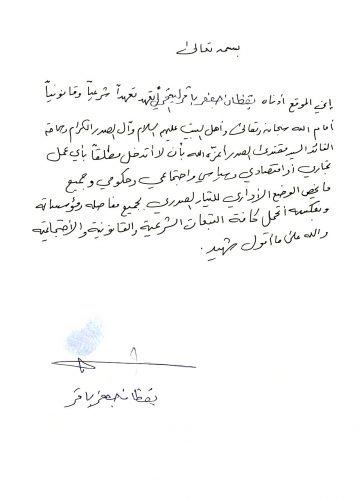 بسمه تعالى
إني الموقع أدناه يقظان جعفر باقر أتعهد تعهداً شرعياً وقانونياً
أمام الله سبحانه وتعالى وأهل البيت عليهم السلام وآل الصدر الكرام وخاصة
القائد السيد مقتدى الصدر أعزه الله بأن لا أتدخل مطلقاً بأي عمل
تجاري أو اقتصادي وسياسي واجتماعي وحكومي وجميع
ما يخص الوضع الإداري للتيار الصدري بجميع مفاصله ومؤسساته
وبعكسه أتحمل كافة التبعات الشرعية والقانونية والاجتماعية
والله على ما أقول شهيد.
يقظان جعفر باقر